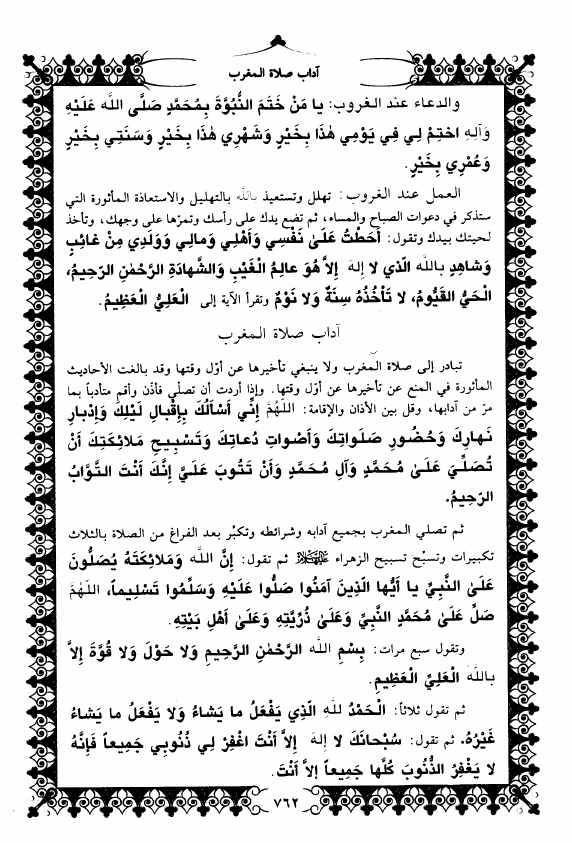 آداب صلاة المغرب
والدعاء عند الغروب: يا مَنْ خَتَمَ النُّبُوَّةَ بِمُحَمَّدٍ صَلَّى اللهُ عَلَيْهِ
وَآلِهِ اخْتِمْ لِي فِي يَوْمِي هٰذا بِخَيْرٍ وَشَهْرِي هٰذا بِخَيْرٍ وَسَنَتِي بِخَيْرٍ
وَعُمْرِي بِخَيْرٍ.
العمل عند الغروب: تهلل وتستعيذ بالله بالتهليل والاستعاذة المأثورة التي
ستذكر في دعوات الصباح والمساء، ثم تضع يدك على رأسك وتمرّها على وجهك، وتأخذ
لحيتك بيدك وتقول: أَحَطْتُ عَلىٰ نَفْسِي وَأَهْلِي وَمالِي وَوَلَدِي مِنْ غائِبٍ
وَشاهِدٍ بِاللهِ الَّذي لا إِلهَ إِلاَّ هُوَ عالِمُ الْغَيْبِ وَالشَّهادَةِ الرَّحْمٰنُ الرَّحِيمُ،
الْحَيُّ الْقَيُّومُ، لا تَأْخُذُهُ سِنَةٌ وَلا نَوْمٌ وتقرأ الآية إلى الْعَلِيُّ الْعَظِيمُ.
آداب صلاة المغرب
تبادر إلى صلاة المغرب ولا ينبغي تأخيرها عن أوّل وقتها وقد بالغت الأحاديث
المأثورة في المنع عن تأخيرها عن أوّل وقتها. وإذا أردت أن تصلّي فأذّن وأقم متأدباً بما
مرّ من آدابها، وقل بين الأذان والإقامة: اللهُمَّ إِنِّي أَسْأَلُكَ بِإِقْبالِ لَيْلِكَ وَإِدْبارِ
نَهارِكَ وَحُضُورِ صَلَواتِكَ وَأَصْواتِ دُعاتِكَ وَتَسْبِيحِ مَلائِكَتِكَ أَنْ
تُصَلِّيَ عَلىٰ مُحَمَّدٍ وَآلِ مُحَمَّدٍ وَأَنْ تَتُوبَ عَلَيَّ إِنَّكَ أَنْتَ التَّوَّابُ
الرَّحِيمُ.
ثم تصلي المغرب بجميع آدابه وشرائطه وتكبّر بعد الفراغ من الصلاة بالثلاث
تكبيرات وتسبّح تسبيح الزهراء عليها السلام ثم تقول: إِنَّ اللهَ وَمَلائِكَتَهُ يُصَلُّونَ
عَلىٰ النَّبِيِّ يا أَيُّها الَّذِينَ آمَنُوا صَلُّوا عَلَيْهِ وَسَلِّمُوا تَسْلِيماً، اللهُمَّ
صَلِّ عَلىٰ مُحَمَّدٍ النَّبِيِّ وَعَلىٰ ذُرِّيَّتِهِ وَعَلىٰ أَهْلِ بَيْتِهِ.
وتقول سبع مرات: بِسْمِ اللهِ الرَّحْمٰنِ الرَّحِيمِ وَلا حَوْلَ وَلا قُوَّةَ إِلاَّ
بِاللهِ الْعَلِيِّ الْعَظِيمِ.
ثم تقول ثلاثاً: الْحَمْدُ للهِ الَّذِي يَفْعَلُ ما يَشاءُ وَلا يَفْعَلُ ما يَشاءُ
غَيْرُهُ. ثم تقول: سُبْحانَكَ لا إِلهَ إِلاَّ أَنْتَ اغْفِرْ لِي ذُنُوبِي جَمِيعاً فَإِنَّهُ
لا يَغْفِرُ الذُّنُوبَ كُلَّها جَمِيعاً إِلاَّ أَنْتَ.
٧٦٢